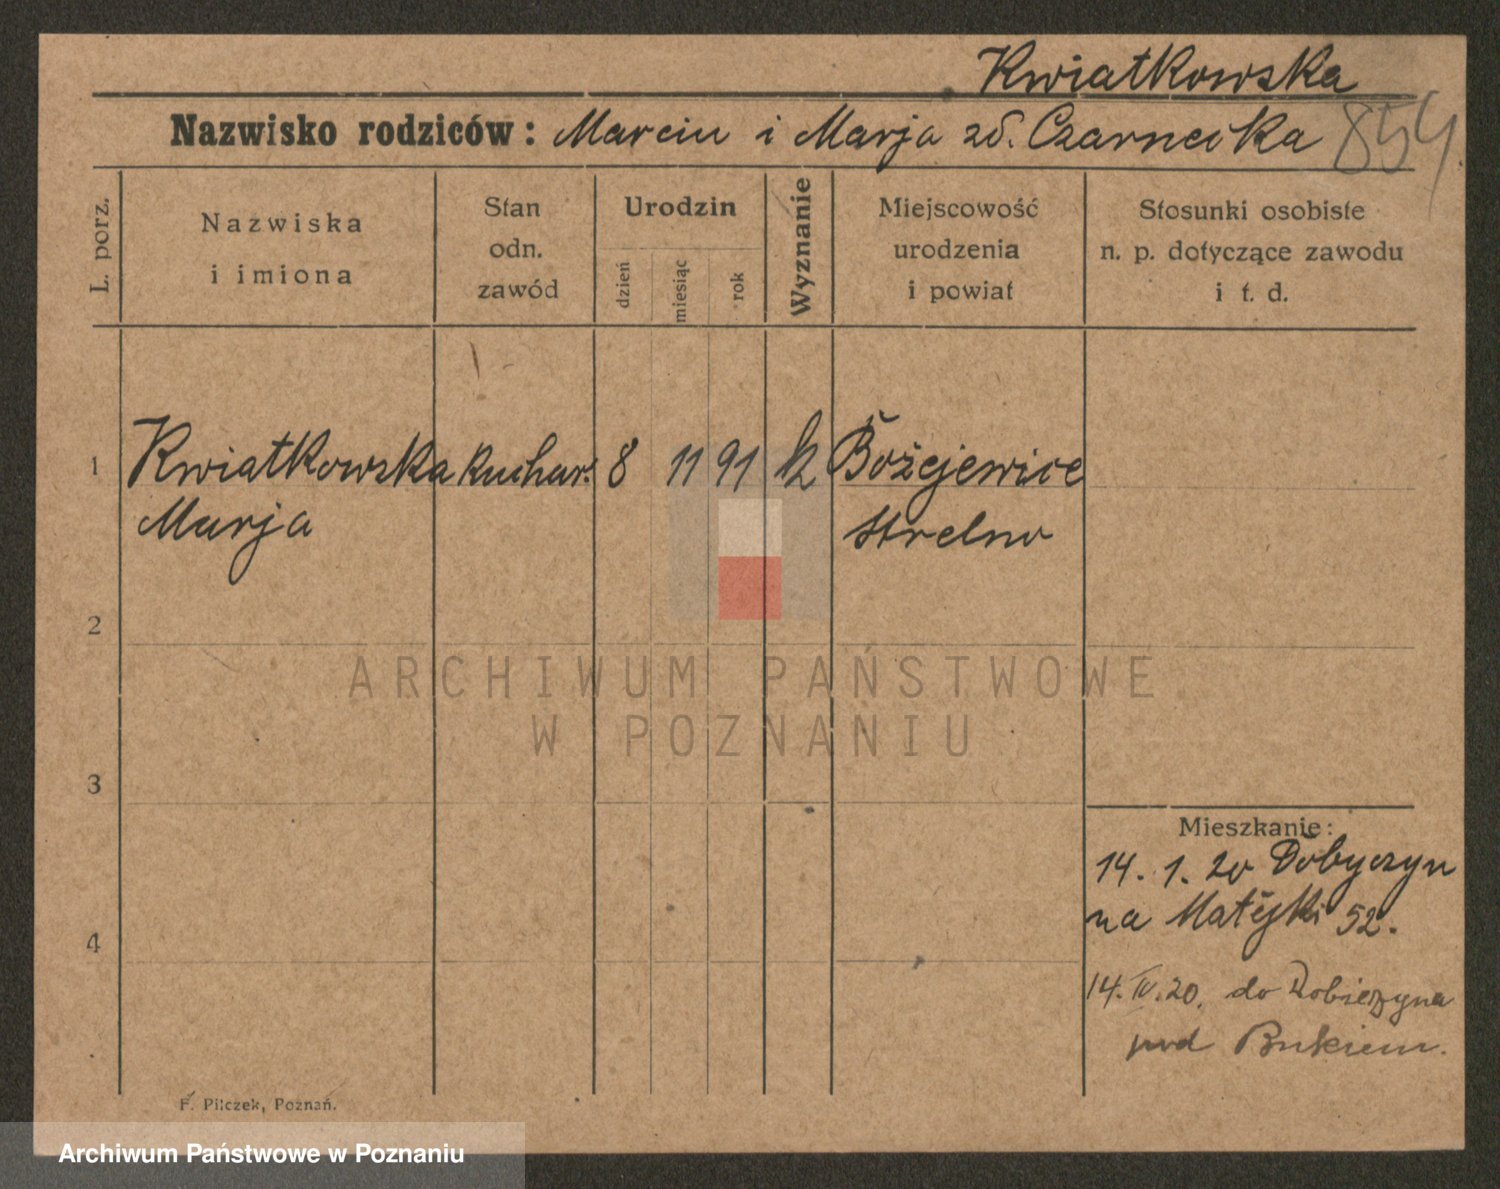 Kwiatkowska
Nazwisko rodziców: Marcin i Marja zd. Czarnecka 854
L. porz.
Nazwiska
i imiona
Stan
odn.
zawód
Urodzin
dzień
miesiąc
rok
Wyznanie
Miejscowość
urodzenia
i powiat
Stosunki osobiste
n. p. dotyczące zawodu
i t. d.
1 Kwiatkowska kuchar. 8 11 91 k Bożejewice
Marja Strelno
2
3
4
Mieszkanie:
14. 1. 20 Dobyczyn
na Matejki 52.
14. IV. 20. do Dobieżyna
pod Bukiem.
F. Pilczek, Poznań.
ARCHIWUM PAŃSTWOWE
W POZNANIU
Archiwum Państwowe w Poznaniu